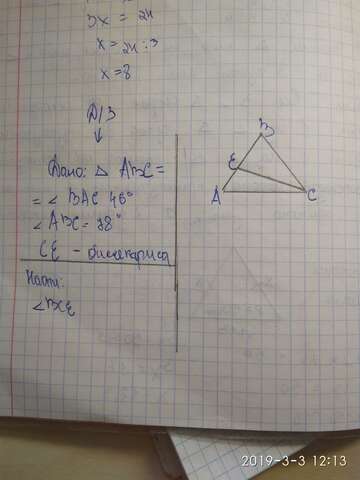 3x = 24
x = 24 : 3
x = 8
Д/З
↓
Дано: △ ABC =
= ∠ BAC 46°
∠ ABC = 78°
CE - биссектриса
Найти:
∠BCE
B
E
A
C
2019-3-3 12:13